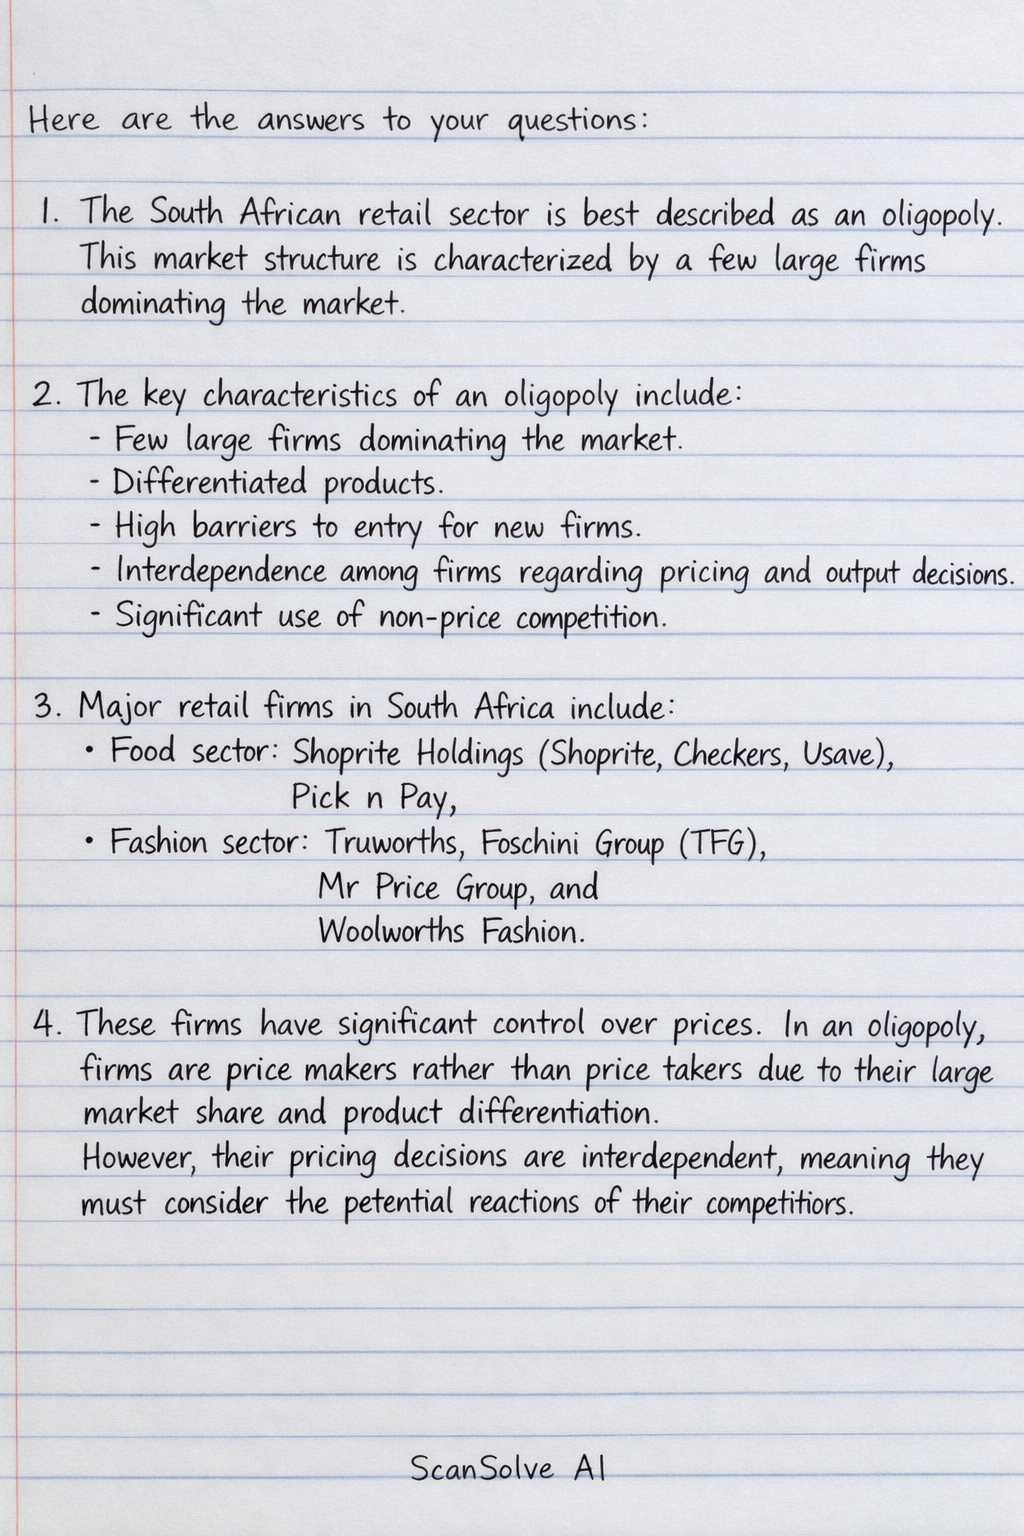 Here are the answers to your questions:
1. The South African retail sector is best described as an oligopoly.
This market structure is characterized by a few large firms
dominating the market.
2. The key characteristics of an oligopoly include:
- Few large firms dominating the market.
- Differentiated products.
- High barriers to entry for new firms.
- Interdependence among firms regarding pricing and output decisions.
- Significant use of non-price competition.
3. Major retail firms in South Africa include:
• Food sector: Shoprite Holdings (Shoprite, Checkers, Usave),
Pick n Pay,
• Fashion sector: Truworths, Foschini Group (TFG),
Mr Price Group, and
Woolworths Fashion.
4. These firms have significant control over prices. In an oligopoly,
firms are price makers rather than price takers due to their large
market share and product differentiation.
However, their pricing decisions are interdependent, meaning they
must consider the petential reactions of their competitiors.
ScanSolve AI